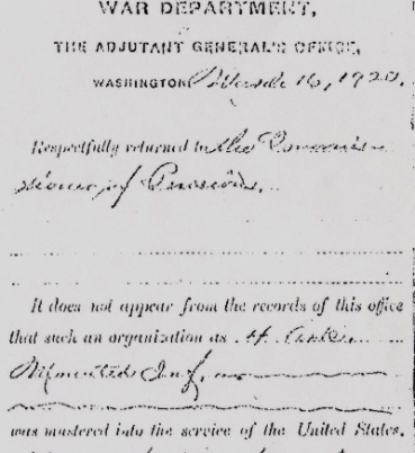 WAR DEPARTMENT,
THE ADJUTANT GENERAL'S OFFICE,
WASHINGTON March 16, 1920.
Respectfully returned to the Commis-
sioner of Pensions.
It does not appear from the records of this office
that such an organization as
Mounted Inf.
was mustered into the service of the United States.